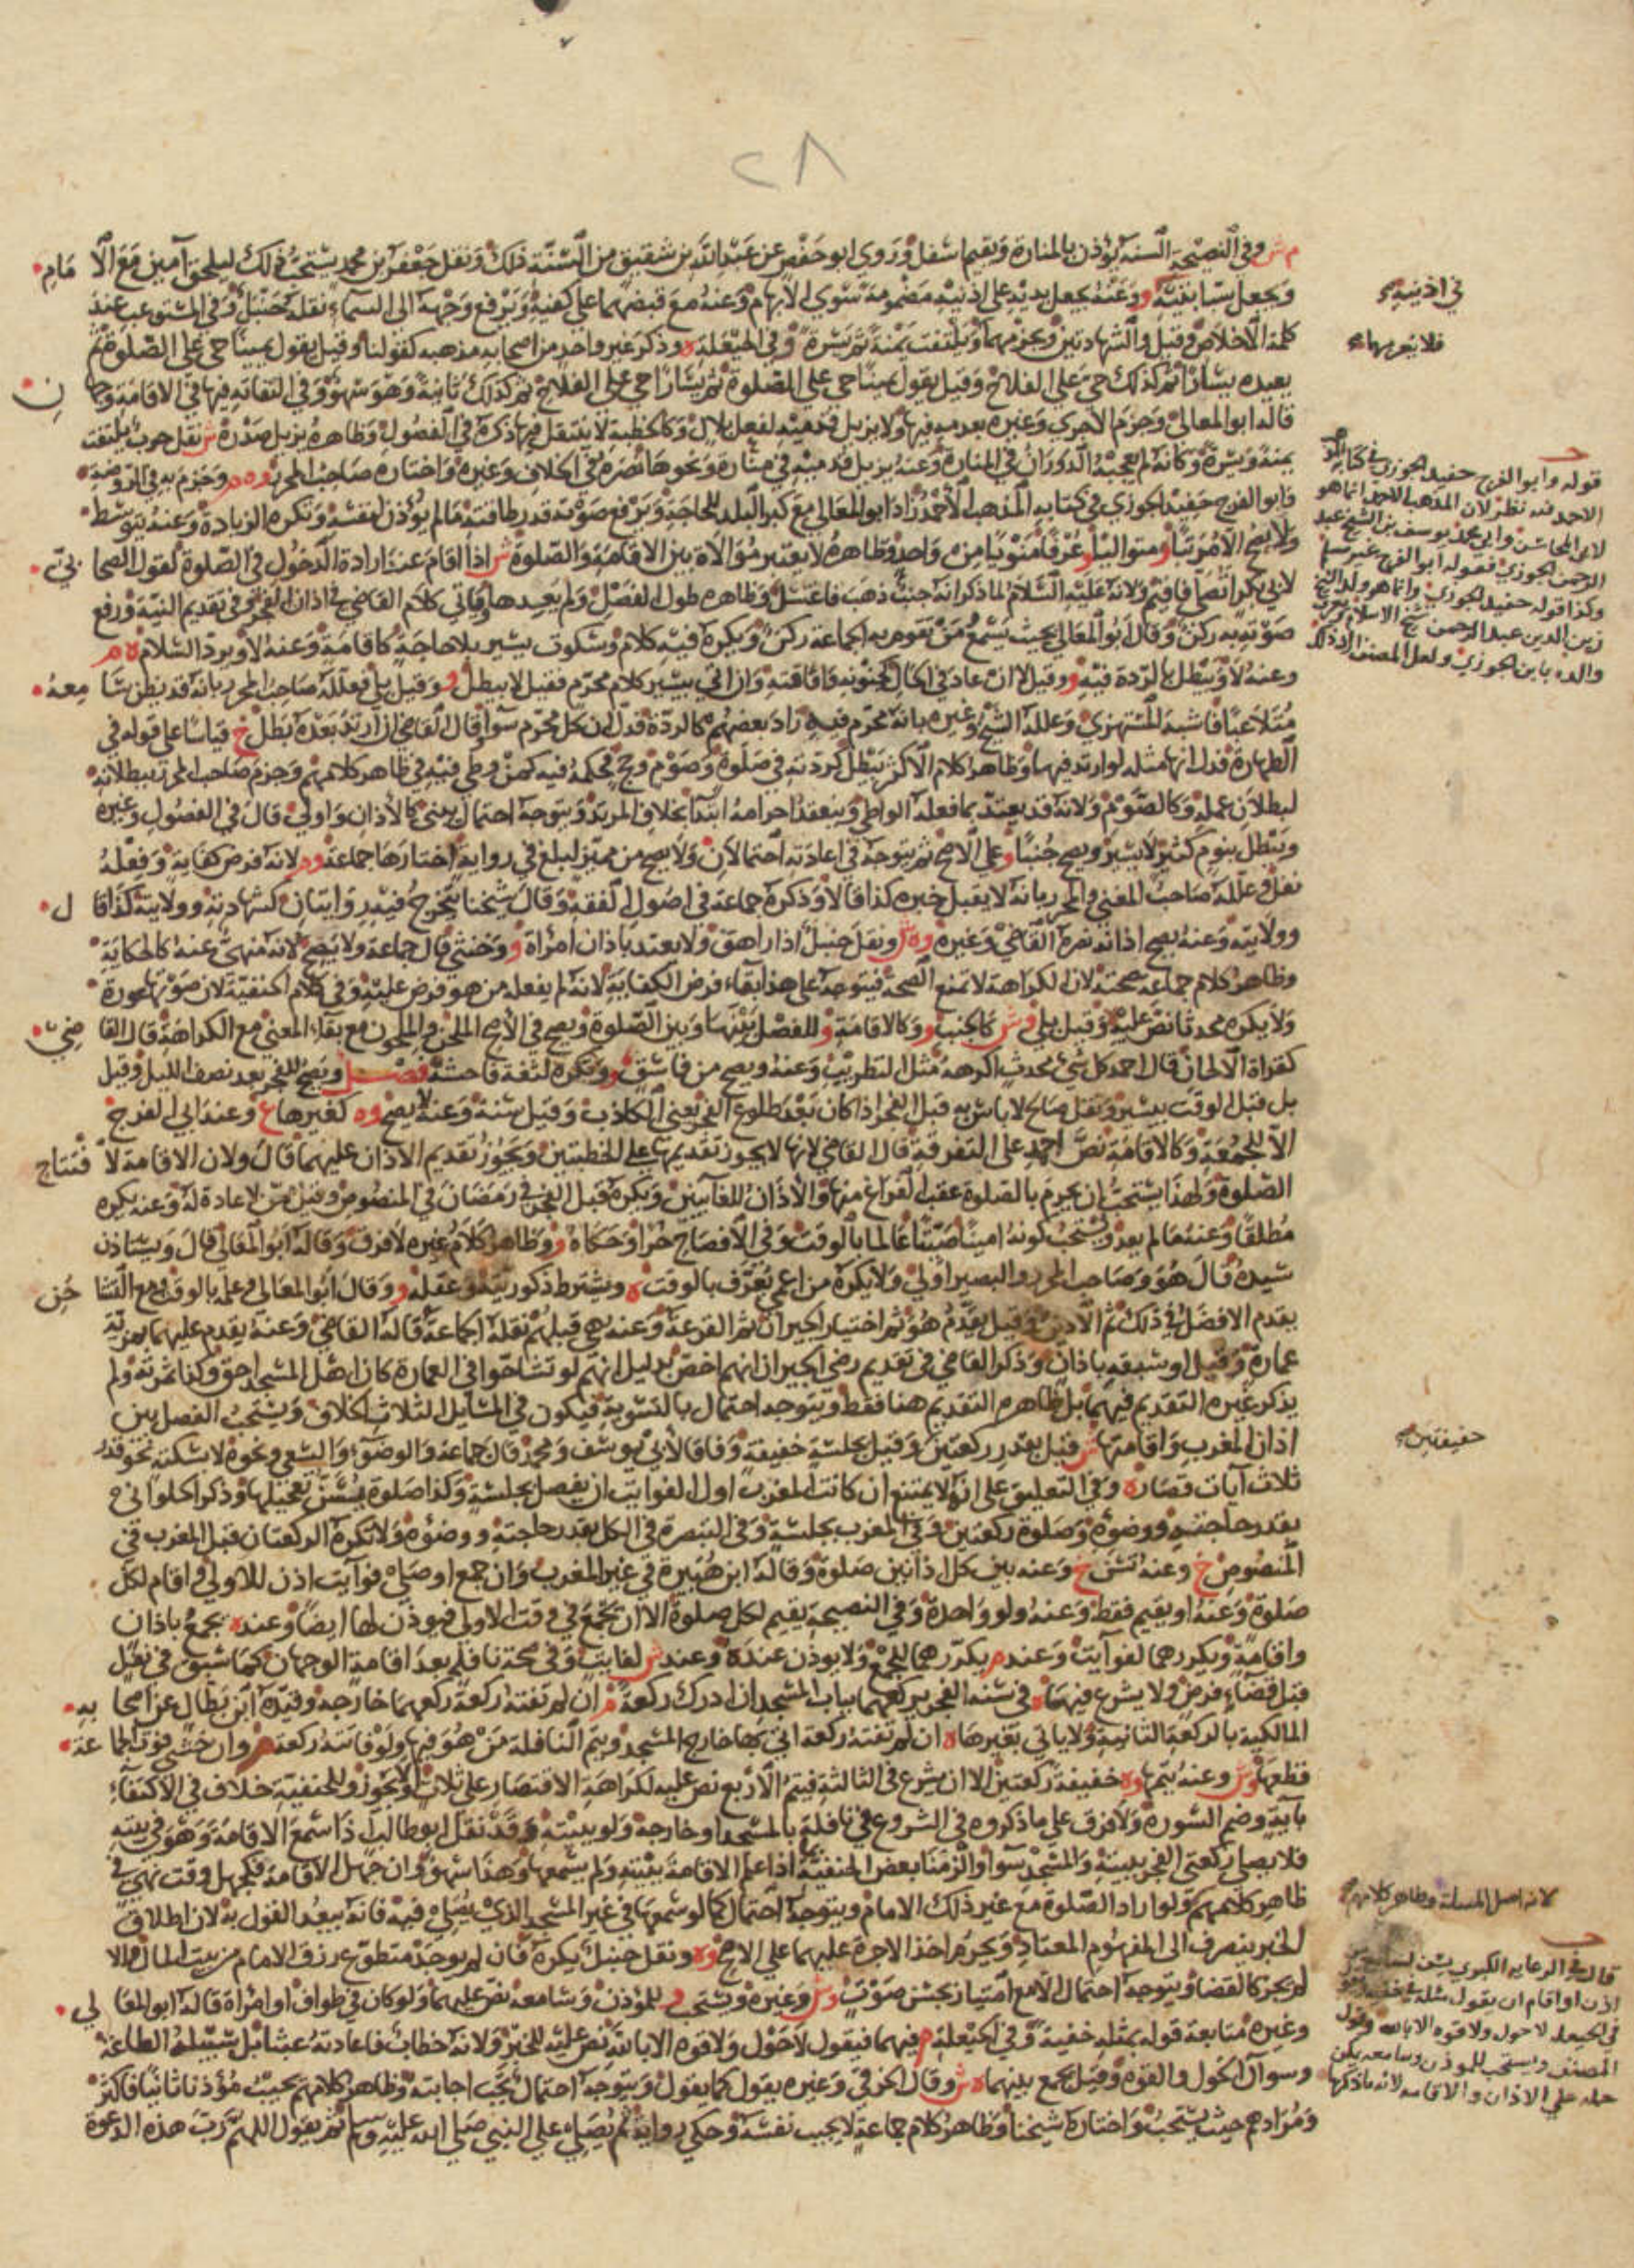 ٢٨
م ش وفي النصيحة السنة يؤذن بالمنارة ويقيم اسفل وروى ابو حفص عن عبد الله بن شقيق من السنة ذلك ونقل جعفر بن محمد يستحب ذلك ليلحق آمين مع الامام
ويجعل سبابتيه و وعنه يجعل يديه على اذنيه مضمومة سوى الابهام وعنه مع قبضهما على كفيه ويرفع وجهه الى السماء نقله حنبل وفي المستوعب عند
كلمة الاخلاص وقيل والشهادتين ويجزمهما ويلتفت يمنة ثم يسرة وفي الحيعلة ه وذكر غير واحد من اصحابه مذهبه كقولنا وقيل يقول يمينا حي على الصلوة ثم
يعيده يسارا ثم كذلك حي على الفلاح وقيل يقول يمينا حي على الصلوة ثم يسارا حي على الفلاح ثم كذلك ثانية وهو سهو وفي التفاته فيها في الاقامة وجهان
قاله ابو المعالي وجزم الآجري وغيره بعدمه فيها ولا يزيل قدميه لفعل بلال وكالخطبة لا ينتقل فيها ذكره في الفصول وظاهره يزيل صدره ش نقل حرب يلتفت
يمنة ويسرة وكانه لم يعجبه الدوران في المنارة وعنه يزيل قدميه في منارة ونحوها نصره في الخلاف وغيره واختاره صاحب المحرر وه م وجزم به في الروضة
وابو الفرج حفيد الجوزي في كتابه المذهب الاحمد زاد ابو المعالي مع كبر البلد للحاجة ويرفع صوته قدر طاقته ما لم يؤذن لنفسه وتكره الزيادة وعنه يتوسط
ولا يصح الا مرتبا ومتواليا و عرفا منويا من واحد وظاهره لا يعتبر موالاة بين الاقامة والصلوة ش اذا اقام عند ارادة الدخول في الصلوة لقول الصحابي
لابي بكر اتصلي فاقيم ولانه عليه السلام لما ذكر انه جنب ذهب فاغتسل وظاهره طول الفصل ولم يعدها وياتي كلام القاضي في اذان الفجر وفي تقديم النية ورفع
صوته به ركن وقال ابو المعالي بحيث يسمع من تقوم به الجماعة ركن ويكره فيه كلام وسكوت يسير بلا حاجة كاقامة وعنه لا ويرد السلام ه م
وعنه لا ويبطل بالردة فيه و وقيل لا ان عاد في الحال كجنونه وافاقته وان اتى بيسير كلام محرم فقيل لا يبطل و وقيل بلى فعلله صاحب المحرر بانه قد يظن سامعه
متلاعبا فاشبه المستهزي وعلله الشيخ وغيره بانه محرم فيه زاد بعضهم كالردة فدل ان كل محرم سواء وقال القاضي ان ارتد بعده بطل خ قياسا على قوله في
الطهارة فدل انها مثله لو ارتد فيها وظاهر كلام الاكثر تبطل كردته في صلوة وصوم وحج لحكمه فيه كمن وطي فيه في ظاهر كلامهم وجزم صاحب المحرر ببطلانه
لبطلان عمله وكالصوم ولانه قد يعتد بما فعله الواطي وينعقد احرامه ابتداء بخلاف المرتد ويتوجه احتمال يبنى كالاذان واولى قال في الفصول وغيره
وتبطل بنوم كثير لا يسير ويصح جنبا و على الاصح ثم يتوجه في اعادته احتمالان ولا يصح من مميز لبلغ في رواية اختارها جماعة وم لانه فرض كفاية وفعله
نفل وعلله صاحب المغني والمحرر بانه لا يقبل خبره كذا قالا وذكره جماعة في اصول الفقه وقال شيخنا يتخرج فيه روايتان كشهادته وولايته كذا قال
وولايته وعنه يصح اذانه نصره القاضي وغيره وه ش ونقل حنبل اذا راهق ولا يعتد باذان امراة و وخنثى قال جماعة ولا يصح لانه منهي عنه كالحكاية
وظاهر كلام جماعة صحته لان الكراهة لا تمنع الصحة فيتوجه على هذا بقاء فرض الكفاية لانه لم يفعله من هو فرض عليه وفي كلام الحنفية لان صوتها عورة
ولا يكره محدثا نص عليه وقيل بلى وش كالجنب و وكالاقامة و للفصل بينها وبين الصلوة ويصح في الاصح الملحن والملحون مع بقاء المعنى مع الكراهة قال القاضي
كقراة الالحان قال احمد كل شيء محدث اكرهه مثل التطريب وعنه ويصح من فاسق و وتكره لثغة فاحشة فصل ويصح للفجر بعد نصف الليل وقيل
بل قبل الوقت بيسير ونقل صالح لا باس به قبل الفجر اذا كان بعد طلوع الفجر يعني الكاذب وقيل سنة وعنه لا يصح وه كغيرها ع وعند ابي الفرج
الا للجمعة وكالاقامة نص احمد على التفرقة قال القاضي لانها لا يجوز تقديمها على الخطبتين ويجوز تقديم الاذان عليهما قال ولان الاقامة لافتتاح
الصلوة ولهذا يستحب ان يحرم بالصلوة عقب الفراغ منها والاذان للغائبين ويكره قبل الفجر في رمضان في المنصوص وقيل ممن لا عادة له وعنه يكره
مطلقا وعنه ما لم يعد ويستحب كونه امينا صيتا عالما بالوقت وفي الافصاح حرا وحكاه و وظاهر كلام غيره لا فرق وقاله ابو المعالي قال ويستاذن
سيده قال هو وصاحب المحرر والبصير اولى ولا يكره من اعمى يعرف بالوقت ه ويشترط ذكوريته وعقله و وقال ابو المعالي وعلمه بالوقت ومع التشاحن
يقدم الافضل في ذلك ثم الادين وقيل يقدم هو ثم اختيار الجيران ثم القرعة وعنه هي قبلهم نقله الجماعة قاله القاضي وعنه يقدم عليهما بمزية
عمارة وقيل او سبقه باذان وذكر القاضي في تقديم رضى الجيران انهم اخص بدليل انهم لو تشاحوا في العمارة كان اهل المسجد احق وكنا نمرته ولم
يذكر غيره التقديم فيهما بل ظاهره التقديم هنا فقط ويتوجه احتمال بالتسوية فيكون في المسائل الثلاث الخلاف ويستحب الفصل بين
اذان المغرب واقامتها ش قيل بقدر ركعتين وقيل بجلسة خفيفة وفاقا لابي يوسف ومحمد قال جماعة والوضوء والسعي ونحوه لا سكتة نحو قدر
ثلاث آيات قصار ه وفي التعليق على انه لا يمتنع ان كانت المغرب اول الفوايت ان يفصل بجلسة وكذا صلوة يسن تعجيلها وذكر الحلواني
بقدر حاجته ووضوءه وصلوة ركعتين وفي المغرب بجلسة وفي التبصرة في الكل بقدر حاجته ووضوءه ولا تكره الركعتان قبل المغرب في
المنصوص خ وعنه تسن خ وعنه بين كل اذانين صلوة وقاله ابن هبيرة في غير المغرب وان جمع او صلى فوآيت اذن للاولى واقام لكل
صلوة وعنه او يقيم فقط وعنه ولو واحدة وفي النصيحة يقيم لكل صلوة الا ان يجمع في وقت الاولى فيوذن لها ايضا وعنده يجمع باذان
واقامة ويكررهما لفوآيت وعند م يكررهما للجمع ولا يوذن عنده وعند ش لفايت وفي صحة نافلة بعد اقامة الوجهان كما سبق في نفل
قبل قضاء فرض ولا يشرع فيهما ه في سنة الفجر يركعهما بباب المسجد ان ادرك ركعة م ان لم تفته ركعة ركعهما خارجه وقيده ابن بطال عن اصحابه
المالكية بالركعة الثانية ولا ياتي بغيرها ه ان لم تفته ركعة اتى بها خارج المسجد ويتم النافلة من هو فيها ولو فاتته ركعة م وان خشي فوت الجماعة
قطعها وش وعنه يتمها وه خفيفة ركعتين الا ان يشرع في الثالثة فيتم الاربع نص عليه لكراهة الاقتصار على ثلاث او لا يجوز وللحنفية خلاف في الاكتفاء
بآية وضم السورة ولا فرق على ما ذكروه في الشروع في نافلة بالمسجد او خارجه ولو ببيته وقد نقل ابو طالب اذا سمع الاقامة وهو في بيته
فلا يصلي ركعتي الفجر ببيته والمسجد سواء والزمنا بعض الحنفية اذا علم الاقامة ببيته ولم يسمعها وهذا سهو وان جهل الاقامة فكجهل وقت نهي في
ظاهر كلامهم ولو اراد الصلوة مع غير ذلك الامام ويتوجه احتمال كما لو سمعها في غير المسجد الذي يصلي فيه فانه يبعد القول به لان اطلاق
الخبر ينصرف الى المفهوم المعتاد ويحرم اخذ الاجرة عليهما على الاصح وه ونقل حنبل يكره فان لم يوجد متطوع رزق الامام من بيت المال والا
لم يجز كالقضا ويتوجه احتمال الا مع امتياز بحسن صوت وش وغيره ويستحب و للمؤذن وسامعه نص عليهما ولو كان في طواف او امراة قاله ابو المعالي
وغيره متابعة قوله بمثله خفية وفي الحيعلة م فيهما فيقول لا حول ولا قوة الا بالله نص عليه للخبر ولانه خطاب فاعادته عبث بل سبيله الطاعة
وسوال الحول والقوة وقيل يجمع بينهما ه ش وقال الخرقي وغيره يقول كما يقول ويتوجه احتمال تجب اجابته وظاهر كلامهم يجيب مؤذنا ثانيا فاكثر
ومرادهم حيث يستحب واختاره شيخنا وظاهر كلام جماعة لا يجيب نفسه وحكي رواية ثم يصلي على النبي صلى الله عليه وسلم ثم يقول اللهم رب هذه الدعوة
في اذنيه
قوله وابو الفرج حفيد الجوزي في كتابه المذهب
الاحمد فيه نظر لان المذهب الاحمد انما هو
لابي المحاسن وابي محمد يوسف بن الشيخ عبد
الرحمن الجوزي فقوله ابو الفرج غير مسلم
وكذا قوله حفيد الجوزي وانما هو ولد الشيخ
زين الدين عبد الرحمن شيخ الاسلام
والده بابن الجوزي ولعل المصنف اراد ذلك
خفيفتين
لانه اصل المسئلة وظاهر كلامهم
قال في الرعاية الكبرى يسن لسامع
اذن او اقام ان يقول مثله خفية
في الحيعلة لا حول ولا قوة الا بالله وقول
المصنف ويستحب للموذن وسامعه يمكن
حمله على الاذان والاقامة لانه ذكرها